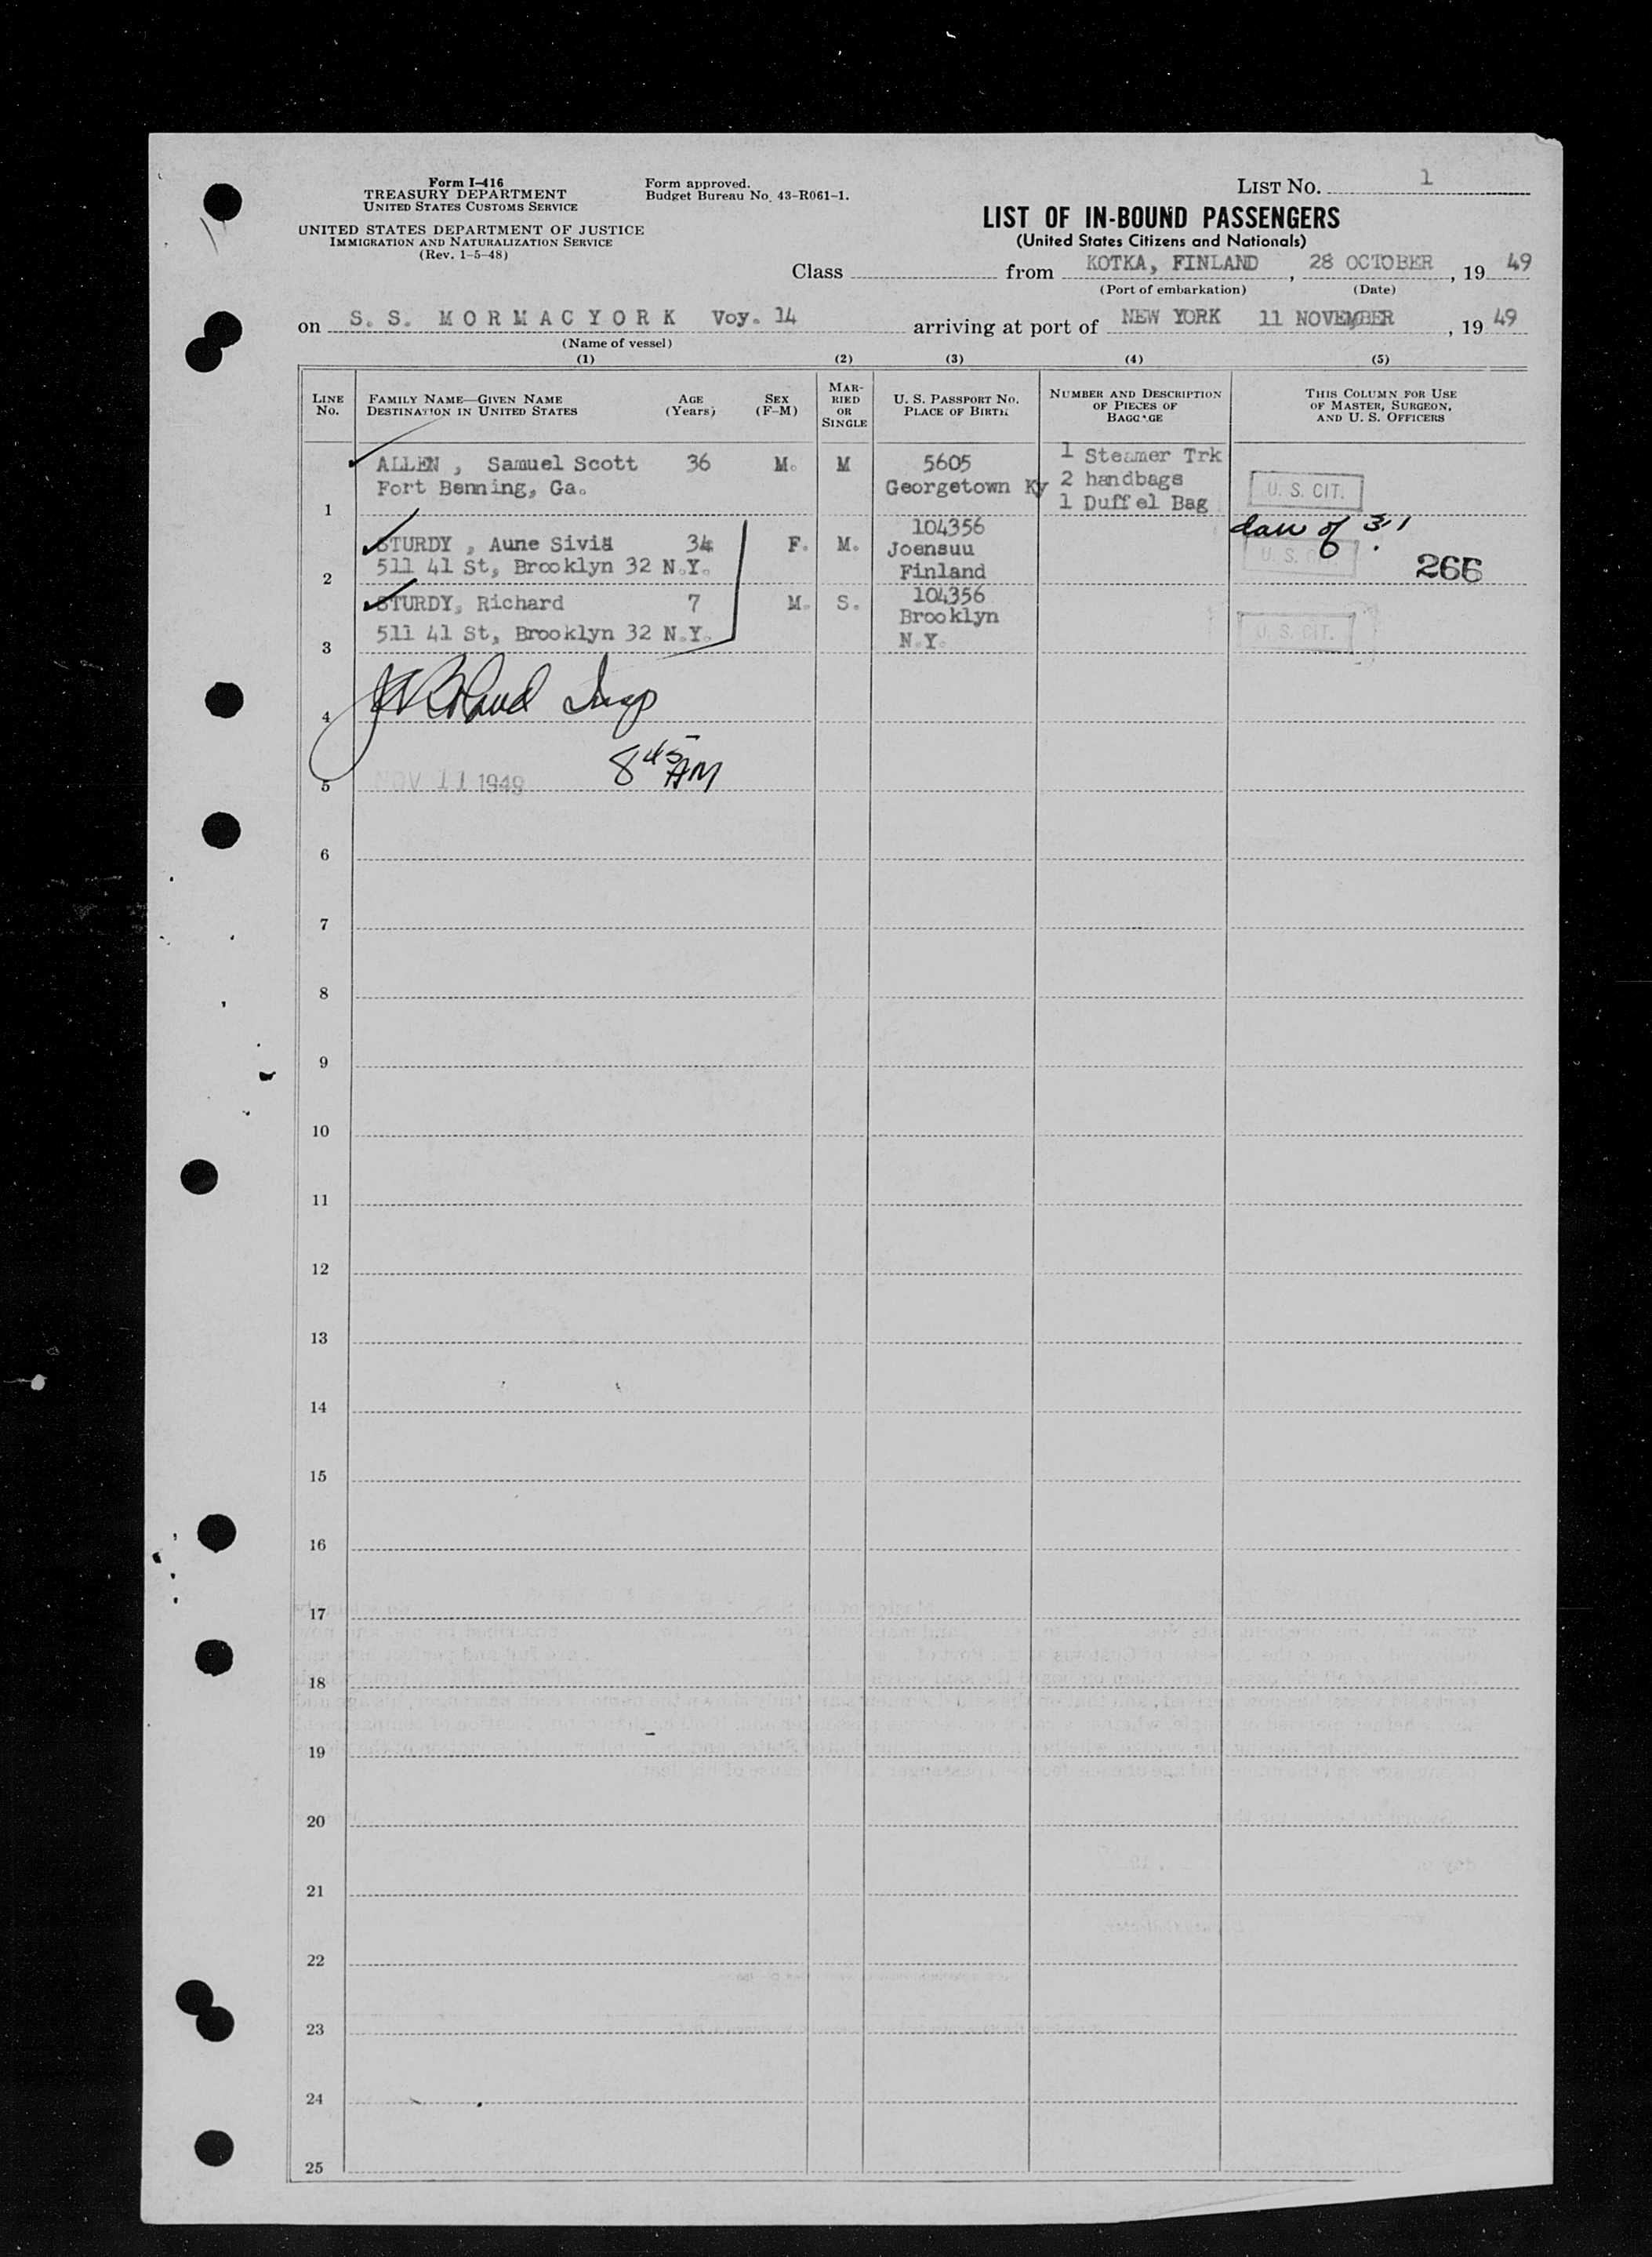 Form I-416
TREASURY DEPARTMENT
UNITED STATES CUSTOMS SERVICE
UNITED STATES DEPARTMENT OF JUSTICE
IMMIGRATION AND NATURALIZATION SERVICE
(Rev. 1-5-48)
Form approved.
Budget Bureau No. 43-R061-1.
LIST NO. 1
LIST OF IN-BOUND PASSENGERS
(United States Citizens and Nationals)
Class from KOTKA, FINLAND, 28 OCTOBER, 19 49
(Port of embarkation) (Date)
on S. S. MORMACYORK Voy. 14 arriving at port of NEW YORK 11 NOVEMBER, 19 49
(Name of vessel)
(1) (2) (3) (4) (5)
LINE NO.
FAMILY NAME—GIVEN NAME
DESTINATION IN UNITED STATES
AGE (Years)
SEX (F-M)
MARRIED OR SINGLE
U. S. PASSPORT NO.
PLACE OF BIRTH
NUMBER AND DESCRIPTION OF PIECES OF BAGGAGE
THIS COLUMN FOR USE OF MASTER, SURGEON, AND U. S. OFFICERS
ALLEN , Samuel Scott 36 M. M 5605 1 Steamer Trk
Fort Benning, Ga. Georgetown Ky 2 handbags U. S. CIT.
1 1 Duffel Bag
104356
STURDY , Aune Sivia 34 F. M. Joensuu U. S. CIT.
511 41 St, Brooklyn 32 N.Y. Finland 266
2
STURDY, Richard 7 M. S. 104356
Brooklyn
511 41 St, Brooklyn 32 N.Y. N.Y. U. S. CIT.
3
4 Insp
8 45 AM
5 NOV 11 1949
6
7
8
9
10
11
12
13
14
15
16
17
18
19
20
21
22
23
24
25